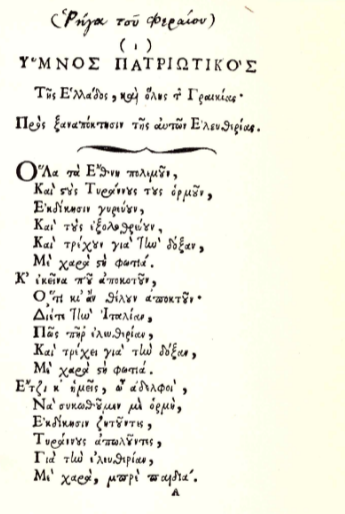 (Ρήγα τοῦ Φεραίου)
(1)
ΥΜΝΟΣ ΠΑΤΡΙΩΤΙΚΟΣ
Τῆς Ἑλλάδος, καὶ ὅλης τ Γραικίας·
Πρὸς ξαναπόκτησιν τῆς αὐτῶν Ἐλευθερίας.
Ὅλα τὰ Ἔθνη πολεμοῦν,
Καὶ τοὺς Τυράννους τους ὁρμοῦν,
Ἐκδίκησιν γυρεύουν,
Καὶ τοὺς ἐξολοθρεύουν,
Καὶ τρέχουν γιὰ τὴν δόξαν,
Μὲ χαρὰ στὴ φωτιά.
Κ' ἐκεῖνα ποῦ ἀποκοτοῦν,
Ὅ,τι κι' ἂν θέλουν ἀποκτοῦν·
Διέτι τὴν Ἰταλίαν,
Πῶς πῆρ' ἐλευθερίαν,
Καὶ τρέχει γιὰ τὴν δόξαν,
Μὲ χαρὰ στὴ φωτιά.
Ἔτζι κ' ἡμεῖς, ὦ ἀδελφοί,
Νὰ συκωθοῦμεν μὲ ὁρμὴ,
Ἐκδίκησιν ζητοῦντες,
Τυράννους ἀπωλοῦντες,
Γιὰ τὴν ἐλευθερίαν,
Μὲ χαρὰ, μπρὲ παιδιά.
Α